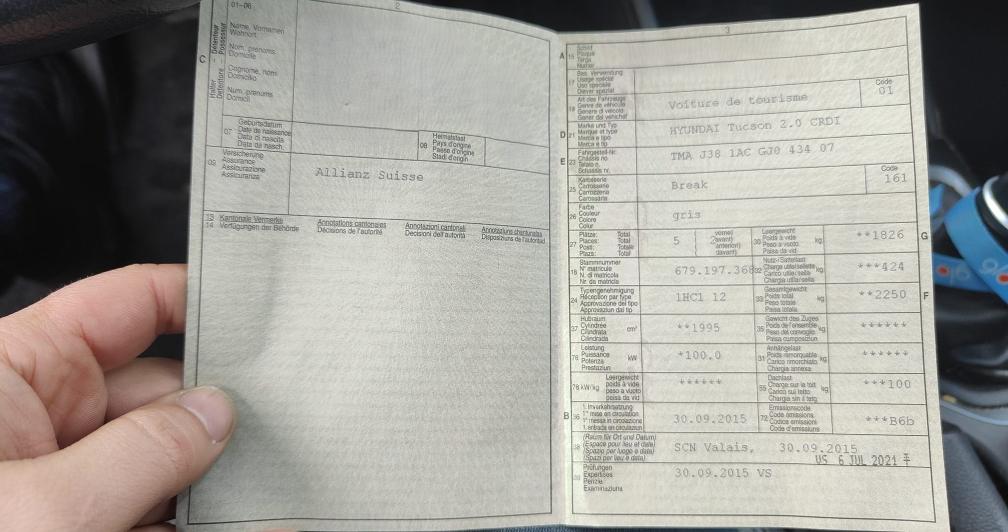 2
01-06
Name, Vornamen
Wohnort
Nom, prénoms
Domicile
Cognome, nomi
Domicilio
Num, prenums
Domicil
C
Halter
Détenteur
Detentore
Possessur
07
Geburtsdatum
Date de naissance
Data di nascita
Data da nasch.
08
Heimatstaat
Pays d'origine
Paese d'origine
Stadi d'origin
09
Versicherung
Assurance
Assicurazione
Assicuranza
Allianz Suisse
13
14
Kantonale Vermerke
Verfügungen der Behörde
Annotations cantonales
Décisions de l'autorité
Annotazioni cantonali
Decisioni dell'autorità
Annotaziuns chantunalas
Disposiziuns da l'autoritad
3
A
15
Schild
Plaque
Targa
Numer
17
Bes. Verwendung
Usage spécial
Uso speciale
Diever spezial
19
Art des Fahrzeugs
Genre de véhicule
Genere di veicolo
Gener dal vehichel
Voiture de tourisme
Code
01
D
21
Marke und Typ
Marque et type
Marca e tipo
Marca e tip
HYUNDAI Tucson 2.0 CRDI
E
23
Fahrgestell-Nr.
Châssis no
Telaio n.
Schassis nr.
TMA J38 1AC GJ0 434 07
25
Karosserie
Carrosserie
Carrozzeria
Carossaria
Break
Code
161
26
Farbe
Couleur
Colore
Colur
gris
27
Plätze: Total
Places: Total
Posti: Totale
Plazs: Total
5
vorne)
2 avant)
anteriori)
davant)
30
Leergewicht
Poids à vide
Peso a vuoto
Paisa da vid
kg
**1826
G
18
Stammnummer
N° matricule
N. di matricola
Nr. da matricla
679.197.368
32
Nutz-/Sattellast
Charge utile/sellette
Carico utile/sella
Chargia utila/sella
kg
***424
24
Typengenehmigung
Réception par type
Approvazione del tipo
Approvaziun dal tip
1HC1 12
33
Gesamtgewicht
Poids total
Peso totale
Paisa totala
kg
**2250
F
37
Hubraum
Cylindrée
Cilindrata
Cilindrada
cm³
**1995
35
Gewicht des Zuges
Poids de l'ensemble
Peso del convoglio
Paisa cumposiziun
kg
******
76
Leistung
Puissance
Potenza
Prestaziun
kW
*100.0
31
Anhängelast
Poids remorquable
Carico rimorchiato
Chargia annexa
kg
******
78 kW/kg
Leergewicht
poids à vide
peso a vuoto
paisa da vid
******
55
Dachlast
Charge sur le toit
Carico sul tetto
Chargia sin il tetg
kg
***100
B
36
1. Inverkehrsetzung
1re mise en circulation
1a messa in circolazione
1. entrada en circulaziun
30.09.2015
72
Emissionscode
Code émissions
Codice emissioni
Code d'emissiuns
***B6b
38
(Raum für Ort und Datum)
(Espace pour lieu et date)
(Spazio per luogo e data)
(Spazi per lieu e data)
SCN Valais, 30.09.2015
VS 6 JUL 2021
39
Prüfungen
Expertises
Perizie
Examinaziuns
30.09.2015 VS